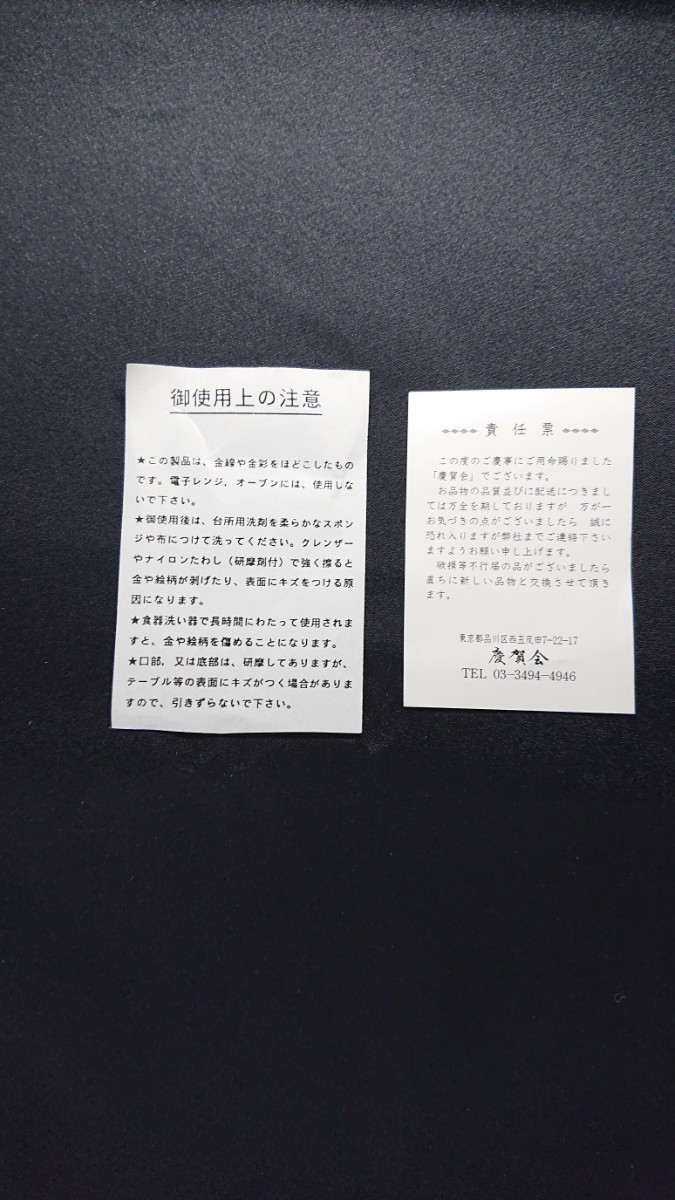 御使用上の注意
★この製品は、金線や金彩をほどこしたもの
です。電子レンジ，オーブンには、使用しな
いで下さい。
★御使用後は、台所用洗剤を柔らかなスポン
ジや布につけて洗ってください。クレンザー
やナイロンたわし（研摩剤付）で強く擦ると
金や絵柄が剥げたり、表面にキズをつける原
因になります。
★食器洗い器で長時間にわたって使用されま
すと、金や絵柄を傷めることになります。
★口部，又は底部は、研摩してありますが、
テーブル等の表面にキズがつく場合がありま
すので、引きずらないで下さい。
責任票
この度のご慶事にご用命賜りました
「慶賀会」でございます。
お品物の品質並びに配送につきまし
ては万全を期しておりますが　万が一
お気づきの点がございましたら　誠に
恐れ入りますが弊社までご連絡下さい
ますようお願い申し上げます。
破損等不行届の品がございましたら
直ちに新しい品物と交換させて頂き
ます。
東京都品川区西五反田7-22-17
慶賀会
TEL 03-3494-4946